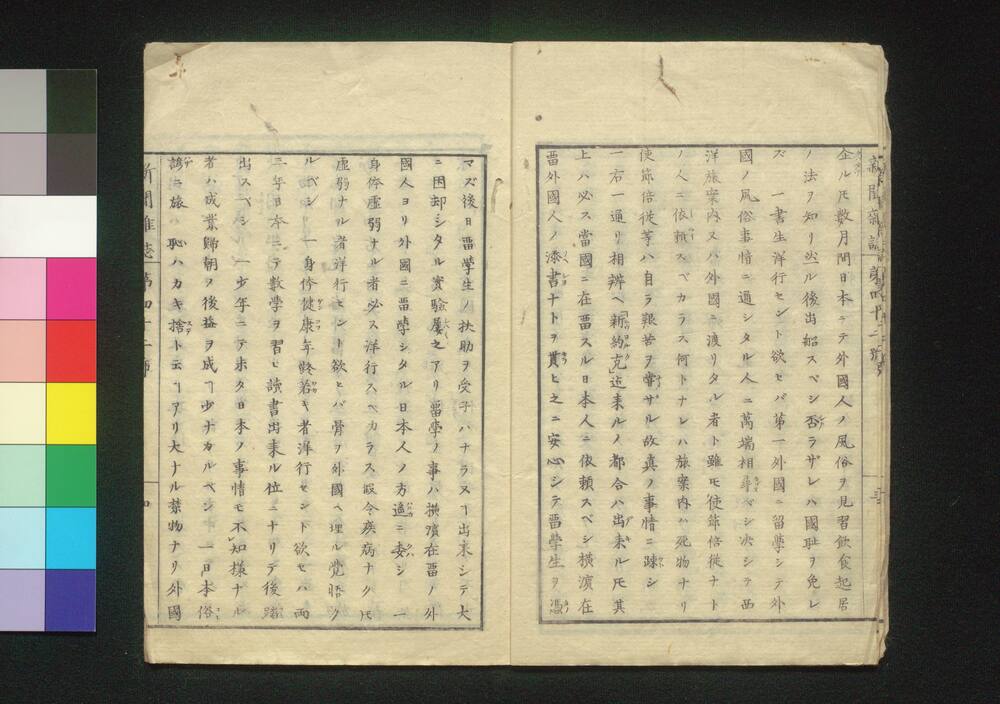 新聞雑誌 第四十二號 三
企ルモ數月間日本ニテ外國人ノ風俗ヲ見習飲食起居
ノ法ヲ知リ然ル後出船スベシ否ラザレハ國耻ヲ免レ
ズ 一書生洋行セント欲セバ第一外國ニ留學シテ外
國ノ風俗事情ニ通シタル人ニ萬端相尋ベシ决シテ西
洋旅案内又ハ外國ニ渡リタル者ト雖モ使節倍從ナト
ノ人ニ依頼スベカラス何トナレハ旅案内ハ死物ナリ
使節倍從等ハ自ラ艱苦ヲ甞ザル故真ノ事情ニ踈シ
一右一通リ相辨ヘ新約克迄来ルノ都合ハ出来ルモ其
上ハ必ス當國ニ在畱スル日本人ニ依頼スベシ横濵在
畱外國人ノ添書ナトヲ貰ヒ之ニ安心シテ畱學生ヲ憑
マズ後日畱學生ノ扶助ヲ受子ハナラヌヿ出来シテ大
ニ困却シタル實驗屢之アリ畱學ノ事ハ横濵在畱ノ外
國人ヨリ外國ニ畱學シタル日本人ノ方遙ニ委シ 一
身体虚弱ナル者必ス洋行スベカラス假令疾病ナクモ
虚弱ナル者洋行セント欲セバ骨ヲ外國ヘ埋ル覚悟ク
ルベシ 一身体健康年齢若キ者洋行セント欲セハ両
三年日本ニテ數学ヲ習ヒ讀書出来ル位ニナリテ後踏
出スベシ 一少年ニテ未タ日本ノ事情モ不知様ナル
者ハ成業歸朝ノ後益ヲ成ヿ少ナカルベシ 一日本俗
諺ニ旅ハ恥ハカキ捨ト云ヿアリ大ナル禁物ナリ外國
新聞雑誌 第四十二號 四